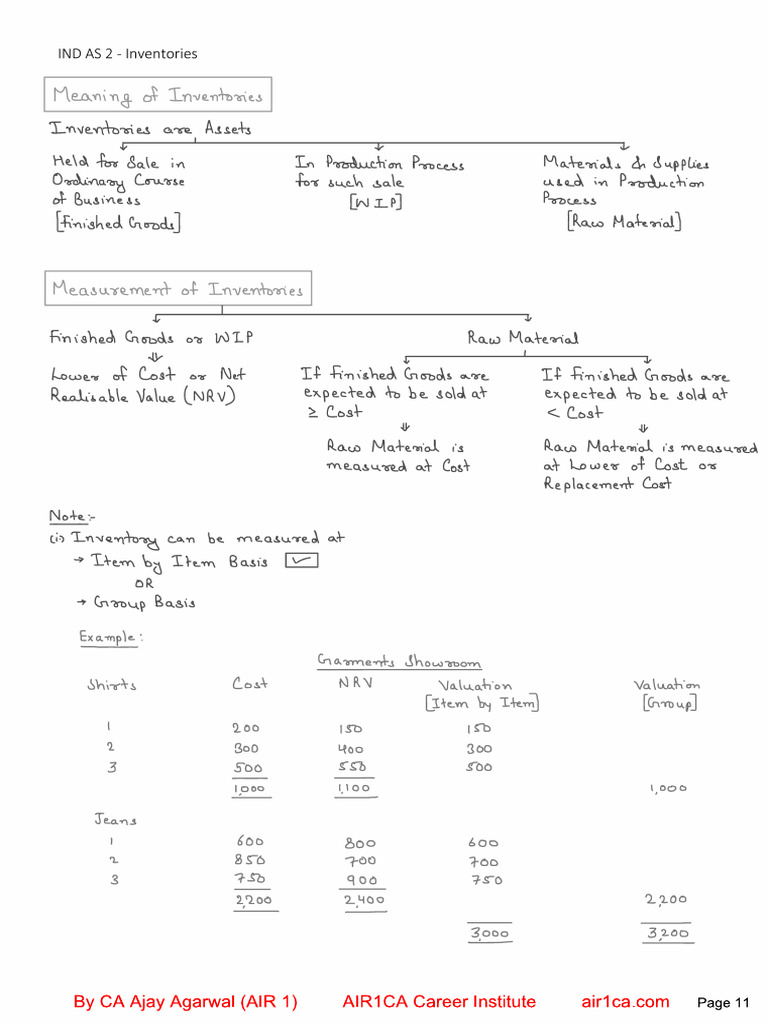 IND AS 2 - Inventories
Meaning of Inventories
Inventories are Assets
Held for Sale in
Ordinary Course
of Business
[Finished Goods]
In Production Process
for such sale
[WIP]
Materials & Supplies
used in Production
Process
[Raw Material]
Measurement of Inventories
Finished Goods or WIP
Lower of Cost or Net
Realisable Value (NRV)
Raw Material
If Finished Goods are
expected to be sold at
≥ Cost
Raw Material is
measured at Cost
If Finished Goods are
expected to be sold at
< Cost
Raw Material is measured
at Lower of Cost or
Replacement Cost
Note:-
(i) Inventory can be measured at
→ Item by Item Basis ✓
OR
→ Group Basis
Example:
Garments Showroom
Shirts Cost NRV Valuation Valuation
[Item by Item] [Group]
1 200 150 150
2 300 400 300
3 500 550 500
1,000 1,100 1,000
Jeans
1 600 800 600
2 850 700 700
3 750 900 750
2,200 2,400 2,200
3,000 3,200
By CA Ajay Agarwal (AIR 1) AIR1CA Career Institute air1ca.com Page 11